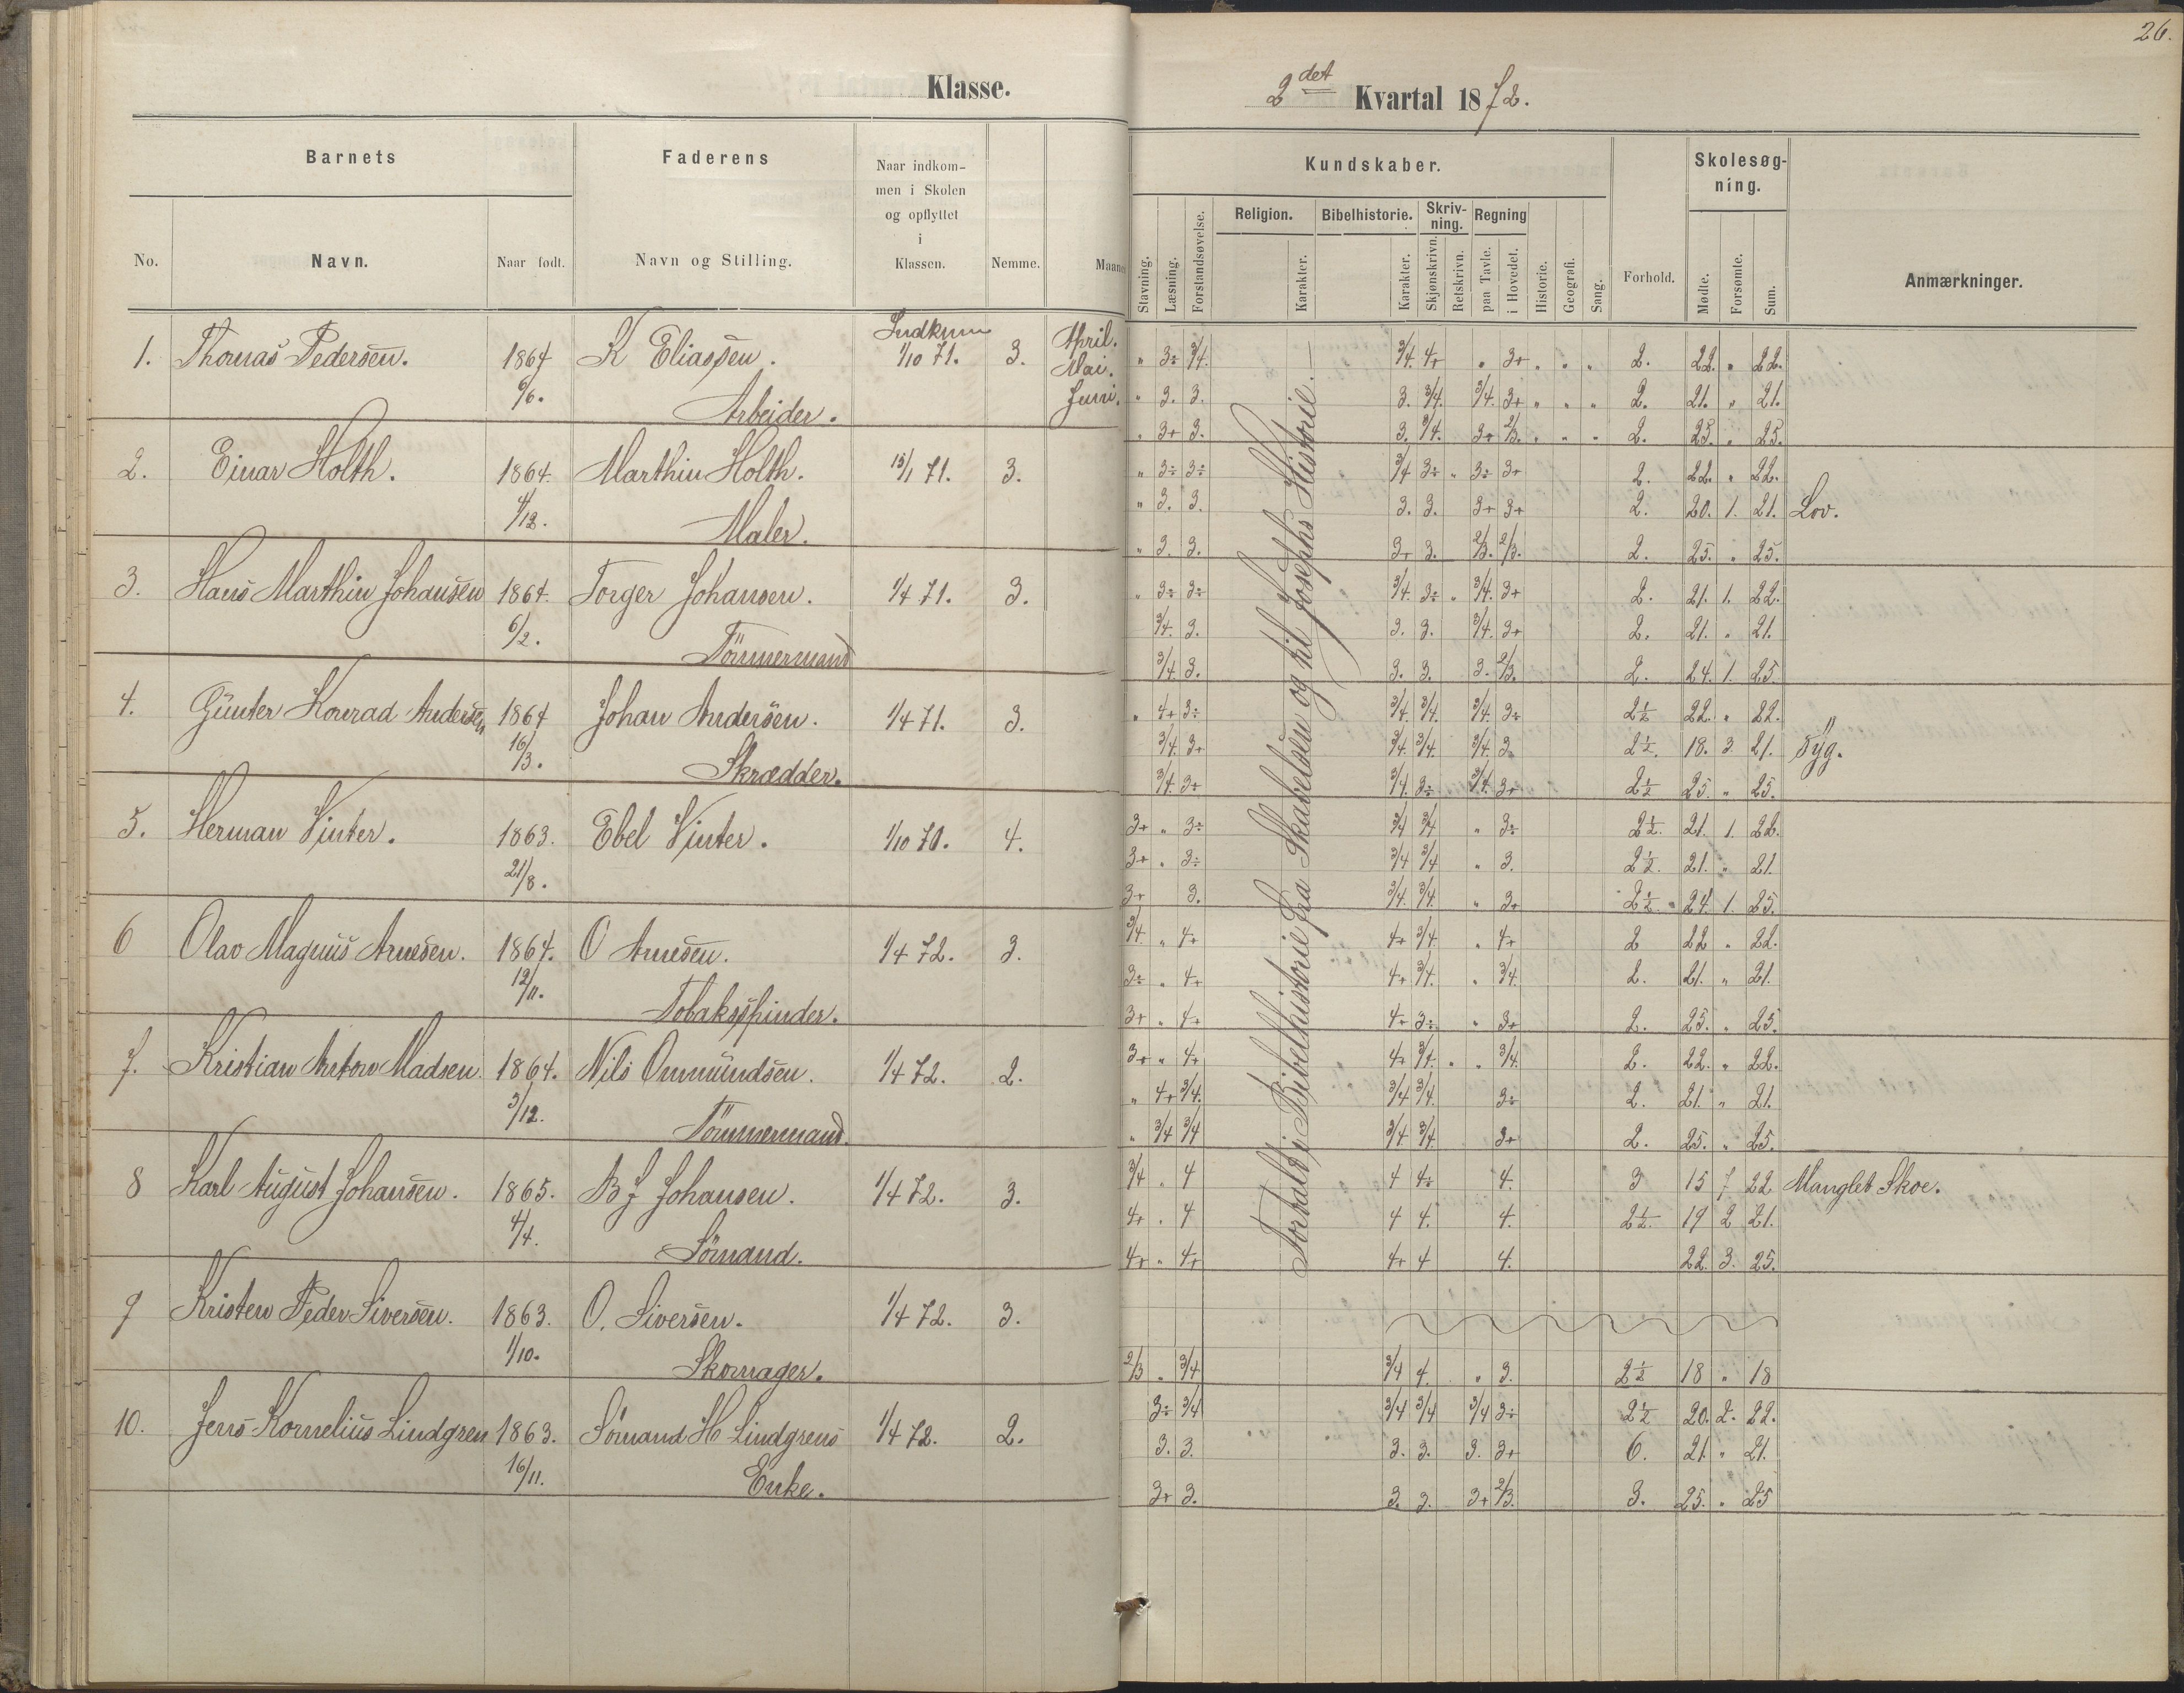 26.
Klasse.
2det Kvartal 1872.
Barnets
Faderens
Naar indkom-
men i Skolen
og opflyttet
i
Klassen.
No.
Navn.
Naar født.
Navn og Stilling.
Nemme.
Kundskaber.
Skolesøg-
ning.
Religion.
Bibelhistorie.
Skriv-
ning.
Regning
Stavning.
Læsning.
Forstandsøvelse.
Karakter.
Karakter.
Skjønskrivn.
Retskrivn.
paa Tavle.
i Hovedet.
Historie.
Geografi.
Sang.
Forhold.
Mødte.
Forsømte.
Sum.
Anmærkninger.
Fortalt i Bibelhistorie fra Skabelsen og til Josephs Historie.
Indkom April.
1. Thomas Pedersen. 1864 K Eliassen. 1/10 71. 3. Mai. " 3÷ 3/4. 3/4. 4+ " 3+ " " " 2. 22. " 22.
9/6. Arbeider. Juni. " 3. 3. 3. 3/4. 3/4. 3+ " " " 2. 21. " 21.
" 3+ 3. 3. 3/4. 3+ 2/3. " " " 2. 25. " 25.
2. Einar Holth. 1864. Marthin Holth. 15/1 71. 3. " 3÷ 3÷ 3/4 3÷ " 3÷ 3+ 2. 22. " 22.
4/12. Maler. " 3. 3. 3. 3. 3+ 3+ 2. 20. 1. 21. Lov.
" 3. 3. 3+ 3. 2/3. 2/3. 2. 25. " 25.
3. Hans Marthin Johansen 1864. Torger Johansen. 1/4 71. 3. " 3÷ 3÷ 3/4. 3÷ " 3/4. 3+ 2. 21. 1. 22.
6/2. Tömmermand 3/4. 3. 3. 3. 3/4. 3+ 2. 21. " 21.
3/4. 3. 3. 3. 3. 2/3. 2. 24. 1. 25.
4. Günter Konrad Andersen 1864 Johan Andersen. 1/4 71. 3. " 4+ 3÷ 3/4. 3/4. 3/4. 3÷ 2½ 22. " 22.
16/3. Skrædder. 3/4. 3+ 3/4. 3/4. 3/4. 3. 2½. 18. 3 21. Syg.
3/4. 3+ 3/4. 3÷ 3/4. 3+ 2½ 25. " 25.
5. Herman Vinter. 1863. Ebel Vinter. 1/10 70. 4. 3+ " 3÷ 3/4 3/4 " 3÷ 2½. 21. 1. 22.
21/8. 3+ " 3÷ 3/4 3/4 " 3. 2½. 21. " 21.
3+ 3. 3/4. 3/4. " 3+ 2½. 24. 1. 25.
6 Olav Magnus Arnesen. 1864. O Arnesen. 1/4 72. 3. 3/4. " 4+ 4+ 3/4. " 4+ 2 22 " 22.
12/11. Tobaksspinder. 3÷ " 4+ 4+ 3/4. " 3/4. 2. 21. " 21.
3+ " 4+ 4+ 3÷ " 3+ 2. 25. " 25.
7. Kristian Anton Madsen. 1864. Nils Ommundsen. 1/4 72. 2. 3+ " 4+ 4+ 3/4. " " 3/4. 2. 22. " 22.
3/12. Tömmermand. " 4+ 3/4. 3/4 3/4. 3÷ 2. 21. " 21.
" 3/4 3/4 3/4 3/4. 3+ 2. 25. " 25.
8 Karl August Johansen. 1865. B J Johansen. 1/4 72. 3. 3/4 " 4 4 4÷ 4. 3 15 7 22 Manglet Skoe.
4/4. Sömand. 4+ " 4 4 4. 4. 2½. 19 2 21.
4+ " 4+ 4+ 4 4. 22. 3. 25.
9 Kristen Peder Siversen. 1863. O. Siversen. 1/4 72. 3.
1/10. Skomager. 2/3 " 3/4 3/4 4. " 3. 2½ 18 " 18
10. Jens Kornelius Lindgren 1863. Sömand H Lindgrens 1/4 72. 2. 3÷ 3/4 3/4 3/4 3/4 3÷ 2½ 20. 2. 22.
16/11. Enke. 3. 3. 3. 3. 3. 3+ 6. 21. " 21.
3+ 3. 3. 3. 3+ 2/3. 3. 25. " 25